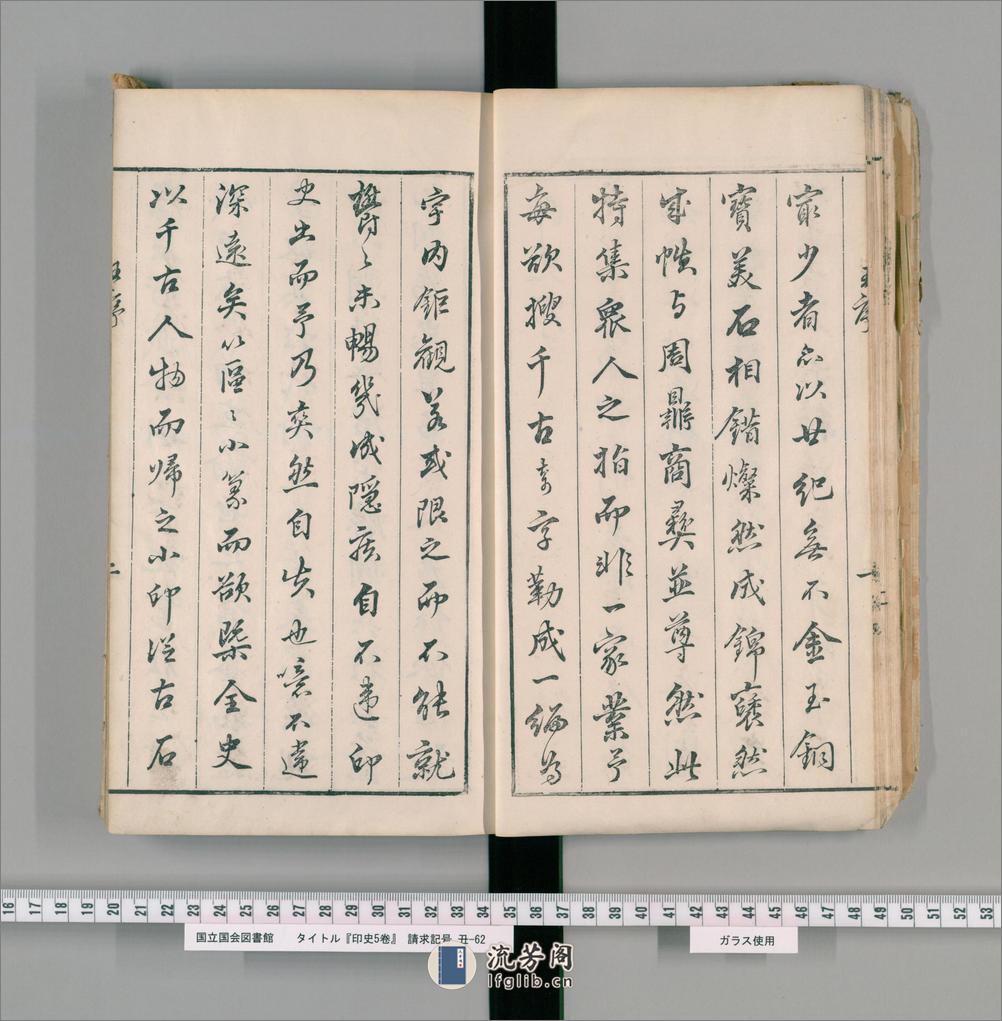 家少者亦以廿紀無不金玉銅
寶美石相錯燦然成錦褎然
成帙与周鼎商彝並尊然此
特集眾人之拍而非一家業予
每欲搜千古奇字勤成一編為
字內鉅觀茲或限之而不能就
鬱〻未暢幾成隱疾自不違印
史出而予乃爽然自失也噫不違
深遠矣以區〻小篆而欲槩全史
以千古人物而歸之小印從古石
王序
二
16 17 18 19 20 21 22 23 24 25 26 27 28 29 30 31 32 33 34 35 36 37 38 39 40 41 42 43 44 45 46 47 48 49 50 51 52 53
国立国会図書館 タイトル『印史5巻』 請求記号 丑-62
ガラス使用
流芳阁
lfglib.cn